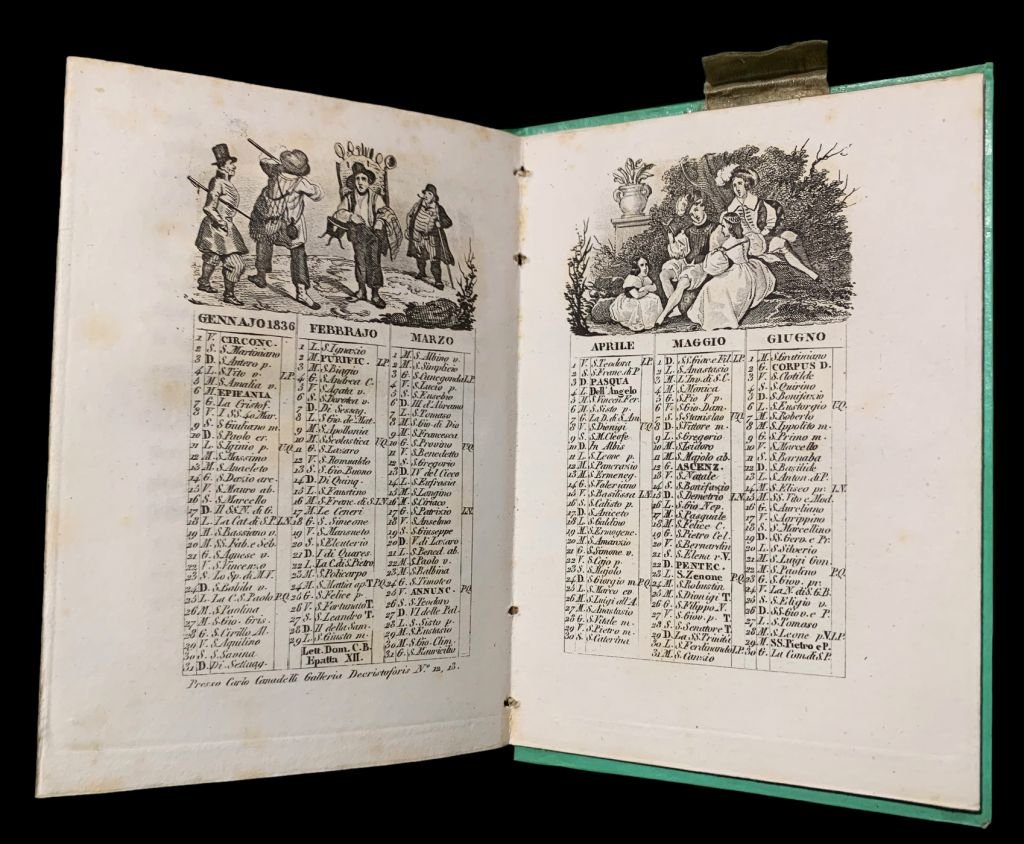 GENNAJO 1836
1 V. CIRCONC.
2 S. S. Martiniano
3 D. S. Antero p.
4 L. S. Tito v. L.P.
5 M. S. Amalia v.
6 M. EPIFANIA
7 G. La Cristof.
8 V. I SS. 40 Mar.
9 S. S. Giuliano m.
10 D. S. Paolo er.
11 L. S. Iginio p. U.Q.
12 M. S. Massimo
13 M. S. Anacleto
14 G. S. Dazio arc.
15 V. S. Mauro ab.
16 S. S. Marcello
17 D. Il SS. N. di G.
18 L. La Cat. di S.P. L.N.
19 M. S. Bassiano v.
20 M. SS. Fab. e Seb.
21 G. S. Agnese v.
22 V. S. Vincenzo
23 S. Lo Sp. di M.V.
24 D. S. Babila v.
25 L. La C. S. Paolo P.Q.
26 M. S. Paolina
27 M. S. Gio. Gris.
28 G. S. Cirillo Al.
29 V. S. Aquilino
30 S. S. Savina
31 D. Di Settuag.
FEBBRAJO
1 L. S. Ignazio
2 M. PURIFIC. L.P.
3 M. S. Biagio
4 G. S. Andrea C.
5 V. S. Agata v.
6 S. S. Dorotea v.
7 D. Di Sessag.
8 L. S. Gio. de Mat.
9 M. S. Apollonia
10 M. S. Scolastica U.Q.
11 G. S. Lazaro
12 V. S. Romualdo
13 S. S. Gio. Buono
14 D. Di Quinq.
15 L. S. Faustino
16 M. S. Franc. di S. L.N.
17 M. Le Ceneri
18 G. S. Simeone
19 V. S. Mansueto
20 S. S. Eleuterio
21 D. I di Quares.
22 L. La C. di S. Pietro
23 M. S. Policarpo
24 M. S. Mattia ap. T. P.Q.
25 G. S. Felice p.
26 V. S. Fortunato T.
27 S. S. Leandro T.
28 D. II della Sam.
29 L. S. Giusto m.
Lett. Dom. C.B.
Epatta XII.
MARZO
1 M. S. Albino v.
2 M. S. Simplicio
3 G. S. Cunegonda L.P.
4 V. S. Lucio p.
5 S. S. Eusebio
6 D. III d'Abramo
7 L. S. Tomaso
8 M. S. Gio. di Dio
9 M. S. Francesca
10 G. S. Provino U.Q.
11 V. S. Benedetto
12 S. S. Gregorio
13 D. IV del Cieco
14 L. S. Eufrasia
15 M. S. Longino
16 M. S. Ciriaco
17 G. S. Patrizio L.N.
18 V. S. Anselmo
19 S. S. Giuseppe
20 D. V. di Lazaro
21 L. S. Bened. ab.
22 M. S. Paolo v.
23 M. S. Balbina
24 G. S. Timoteo
25 V. ANNUNC. P.Q.
26 S. S. Teodoro
27 D. VI delle Pal.
28 L. S. Sisto p.
29 M. S. Eustasio
30 M. S. Gio. Clim.
31 G. S. Maurilio
Presso Carlo Canadelli Galleria Decristoforis N.º 12, 13.
APRILE
1 V. S. Teodora L.P.
2 S. S. Franc. di P.
3 D. PASQUA
4 L. Dell'Angelo
5 M. S. Vincen. Fer.
6 M. S. Sisto p.
7 G. La D. di S. An.
8 V. S. Dionigi U.Q.
9 S. S. M. Cleofe
10 D. In Albis
11 L. S. Leone p.
12 M. S. Pancrazio
13 M. S. Ermeneg.
14 G. S. Valeriano
15 V. S. Basilissa L.N.
16 S. S. Calisto p.
17 D. S. Aniceto
18 L. S. Galdino
19 M. S. Ermogene
20 M. S. Amanzio
21 G. S. Simone v.
22 V. S. Cajo p.
23 S. S. Marolo
24 D. S. Giorgio m. P.Q.
25 L. S. Marco ev
26 M. S. Luigi all'A.
27 M. S. Anastasio
28 G. S. Vitale m.
29 V. S. Pietro m.
30 S. S. Caterina
MAGGIO
1 D. SS. Giac. e Fil. L.P.
2 L. S. Anastasio
3 M. L'Inv. di S. C.
4 M. S. Monica
5 G. S. Pio V p.
6 V. S. Gio. Dam.
7 S. S. Stanislao U.Q.
8 D. S. Vittore m.
9 L. S. Gregorio
10 M. S. Isidoro
11 M. S. Majolo ab.
12 G. ASCENZ.
13 V. S. Natale
14 S. S. Bonifazio
15 D. S. Demetrio L.N.
16 L. S. Gio. Nep.
17 M. S. Pasquale
18 M. S. Felice C.
19 G. S. Pietro Cel.
20 V. S. Bernardin
21 S. S. Elena r. V.
22 D. PENTEC.
23 L. S. Zenone P.Q.
24 M. S. Robustin.
25 M. S. Dionigi T.
26 G. S. Filippo N.
27 V. S. Giov. p. T.
28 S. S. Senatore T.
29 D. La SS. Trinità
30 L. S. Ferdinando L.P.
31 M. S. Canzio
GIUGNO
1 M. S. Gratiniano
2 G. CORPUS D.
3 V. S. Clotilde
4 S. S. Quirino
5 D. S. Bonifazio
6 L. S. Eustorgio U.Q.
7 M. S. Roberto
8 M. S. Ippolito m.
9 G. S. Primo m.
10 V. S. Marcello
11 S. S. Barnaba
12 D. S. Basilide
13 L. S. Anton. di P.
14 M. S. Eliseo pr. L.N.
15 M. SS. Vito e Mod.
16 G. S. Aureliano
17 V. S. Agrippino
18 S. S. Marcellino
19 D. SS. Gerv. e Pr.
20 L. S. Silverio
21 M. S. Luigi Gon.
22 M. S. Paolino P.Q.
23 G. S. Giov. pr.
24 V. La N. di S. G.B.
25 S. S. Eligio v.
26 D. SS. Giov. e P.
27 L. S. Tomaso
28 M. S. Leone p. L.P.
29 M. SS. Pietro e P.
30 G. La Com. di S. P.